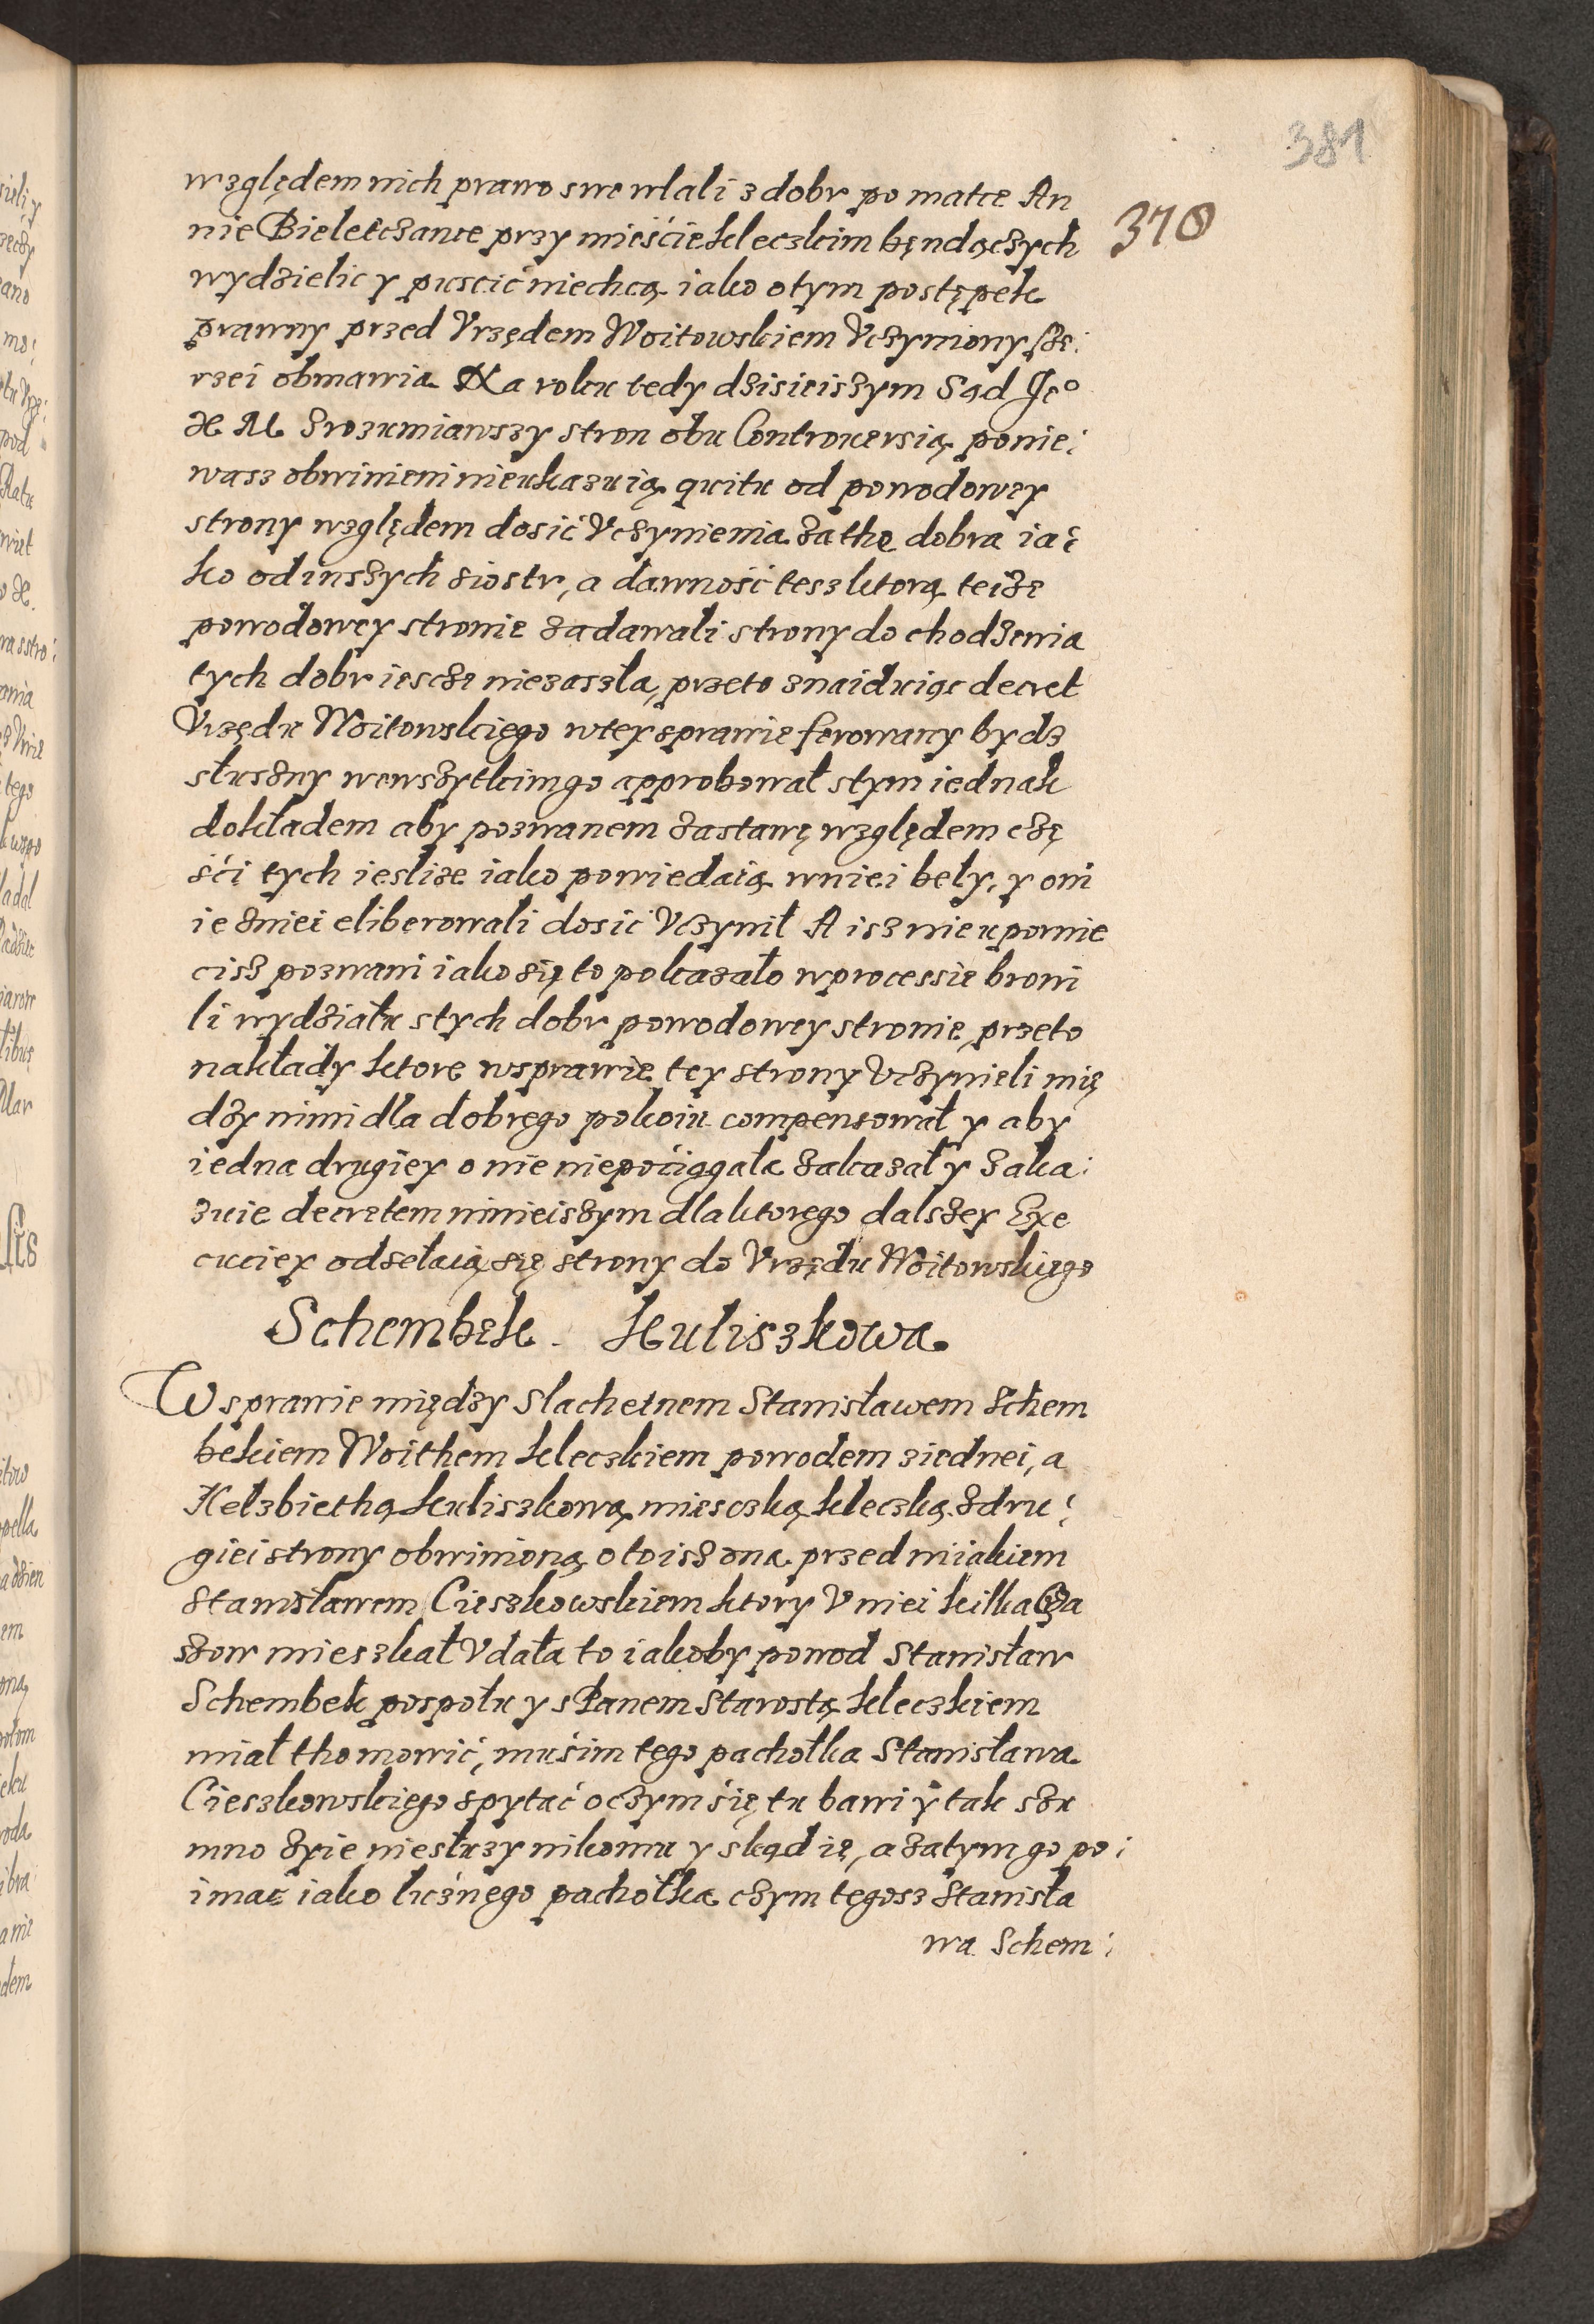 381
370
względem nich prawo swe wlali z dobr po matce An
nie Bieletczance przy mieście kleczkim będączych
wydzielic y puscić niechcą iako otym postępek
prawny przed Vrzędem Woitowskiem Vczyniony sze:
rzei obmawia Na roku tedy dzisieiszym Sąd Je°
K M zrozumiawszy stron obu Controuersią ponie:
wasz obwinieni nieukazuią quitu od powodowey
strony względem dosić Vczynienia za the dobra ia:
ko od inszych siostr, a dawność tesz ktorą teisze
powodowey stronie zadawali strony dochodzenia
tych dobr iescze niezaszła, przeto znaiduiąc decret
Vrzędu Woitowskiego wtey sprawie ferowany bydz
słuszny wewszytkimgo approbował stym iednak
dokładem aby pozwanem zastawę względem czę
ści tych iesliże iako powiedaią wniei beły, y oni
ie zniei eliberowali dosić Vczynił A isz nieupornie
cisz pozwani iako się to pokazało wprocessie broni
li wydziału stych dobr powodowey stronie, przeto
nakłady ktore wsprawie tey strony Vczynieli mię
dzy nimi dla dobrego pokoiu compensował y aby
iedna drugiey o nie niepociągała zakazał y zaka:
zuie decretem ninieiszym dla ktorego dalszey Exe
cuciey odsełaią się strony do Vrzędu Woitowskiego
Schembek Kuliszkowa
W sprawie między Slachetnem Stanisławem Schem
bekiem Woithem kleczkiem powodem ziednei, a
Helzbiethą Kuliszkową miesczką kleczką zdru:
giei strony obwinioną o to isz ona przed niiakiem
Stanisławem Cieszkowskiem ktory V niei kilka Cza
szow mieszkał Vdała to iakoby powod Stanisław
Schembek pospołu y s Panem Starostą kleczkiem
miał tho mowić, musim tego pachołka Stanisława
Cieszkowskiego spytać oczym się tu bawi y tak szu
mno zyie niesłuzy nikomu y skąd ie, a zatym go po:
imać iako luznego pachołka czym tegosz Stanisła
wa Schem: